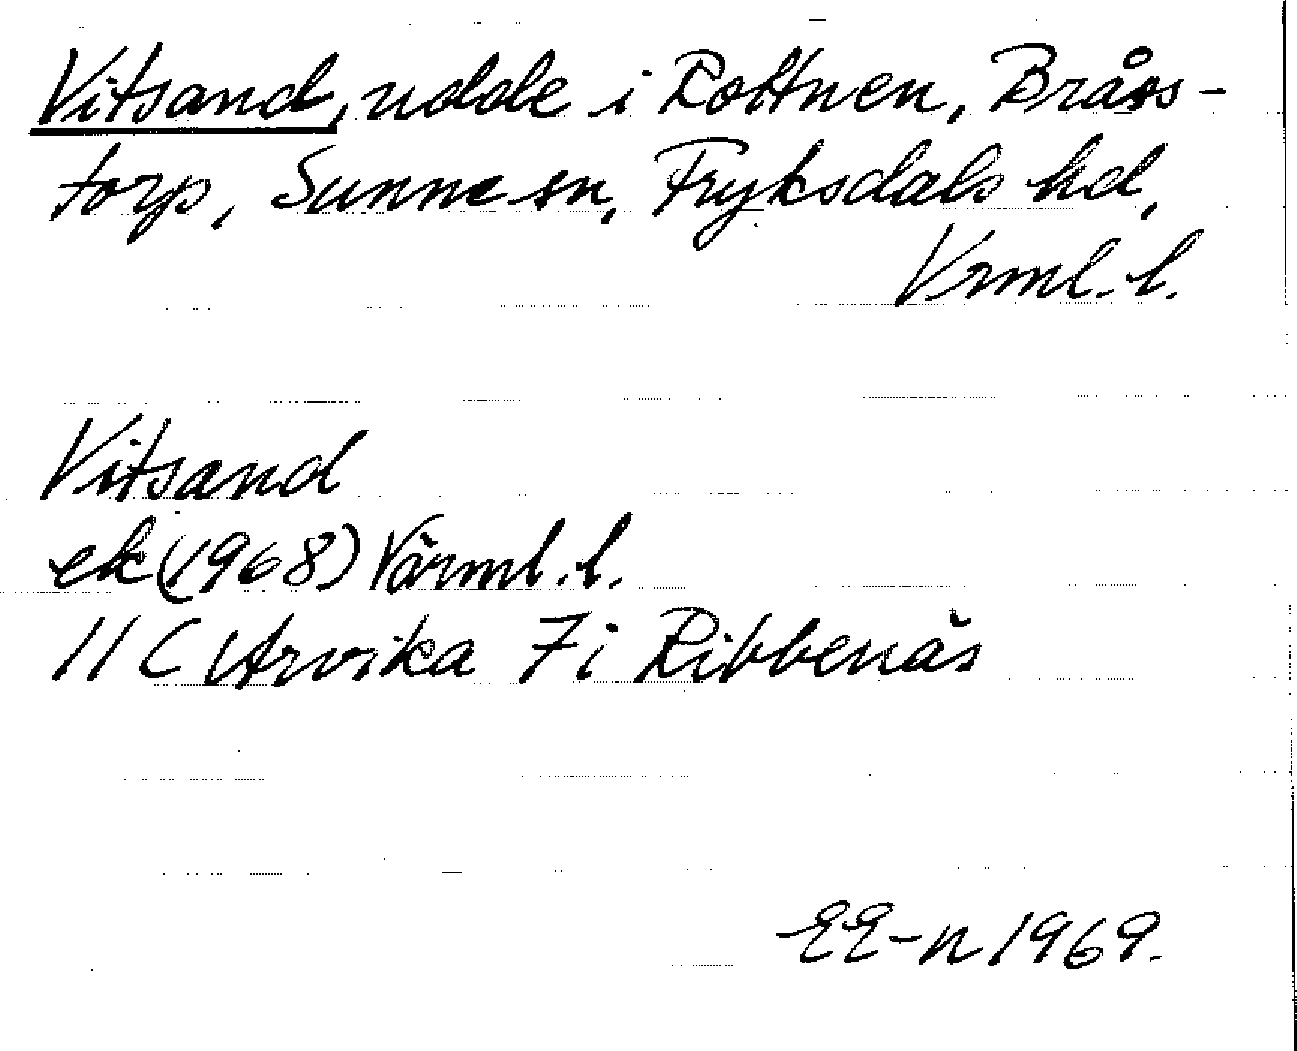 Vitsand, udde i Rottnen, Bråns-
torp, Sunne sn, Fryksdals hd,
Vrml. l.
Vitsand
ek (1968) Värml. l.
11 C Arvika 7 i Ribbenäs
EE-n 1969.